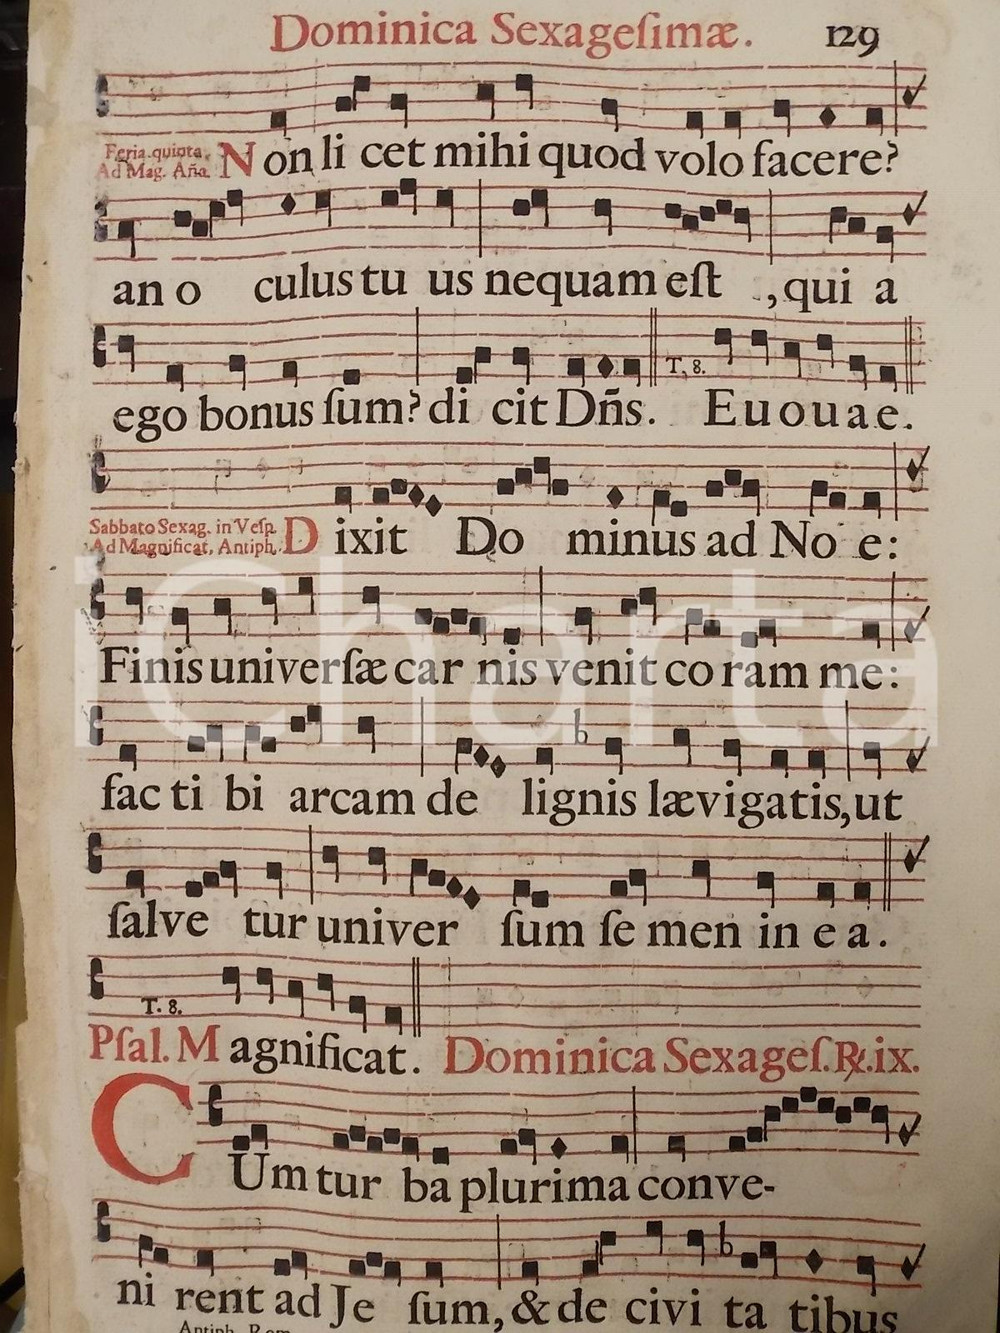 Dominica Sexageſimæ. 129
Feria quinta.
Ad Mag. Aña.
Non li cet mihi quod volo facere?
an o culus tu us nequam eſt , qui a
T. 8.
ego bonus ſum? di cit Dñs. E u o u a e.
Sabbato Sexag. in Veſp.
Ad Magnificat, Antiph.
Dixit Do minus ad No e:
Finis univerſæ car nis venit co ram me:
fac ti bi arcam de lignis lævigatis, ut
ſalve tur univer ſum ſe men in e a.
T. 8.
Pſal. Magnificat. Dominica Sexageſ. ℟. ix.
CUm tur ba plurima conve-
ni rent ad Je ſum, & de civi ta tibus
Antiph. Rom.
iCharta